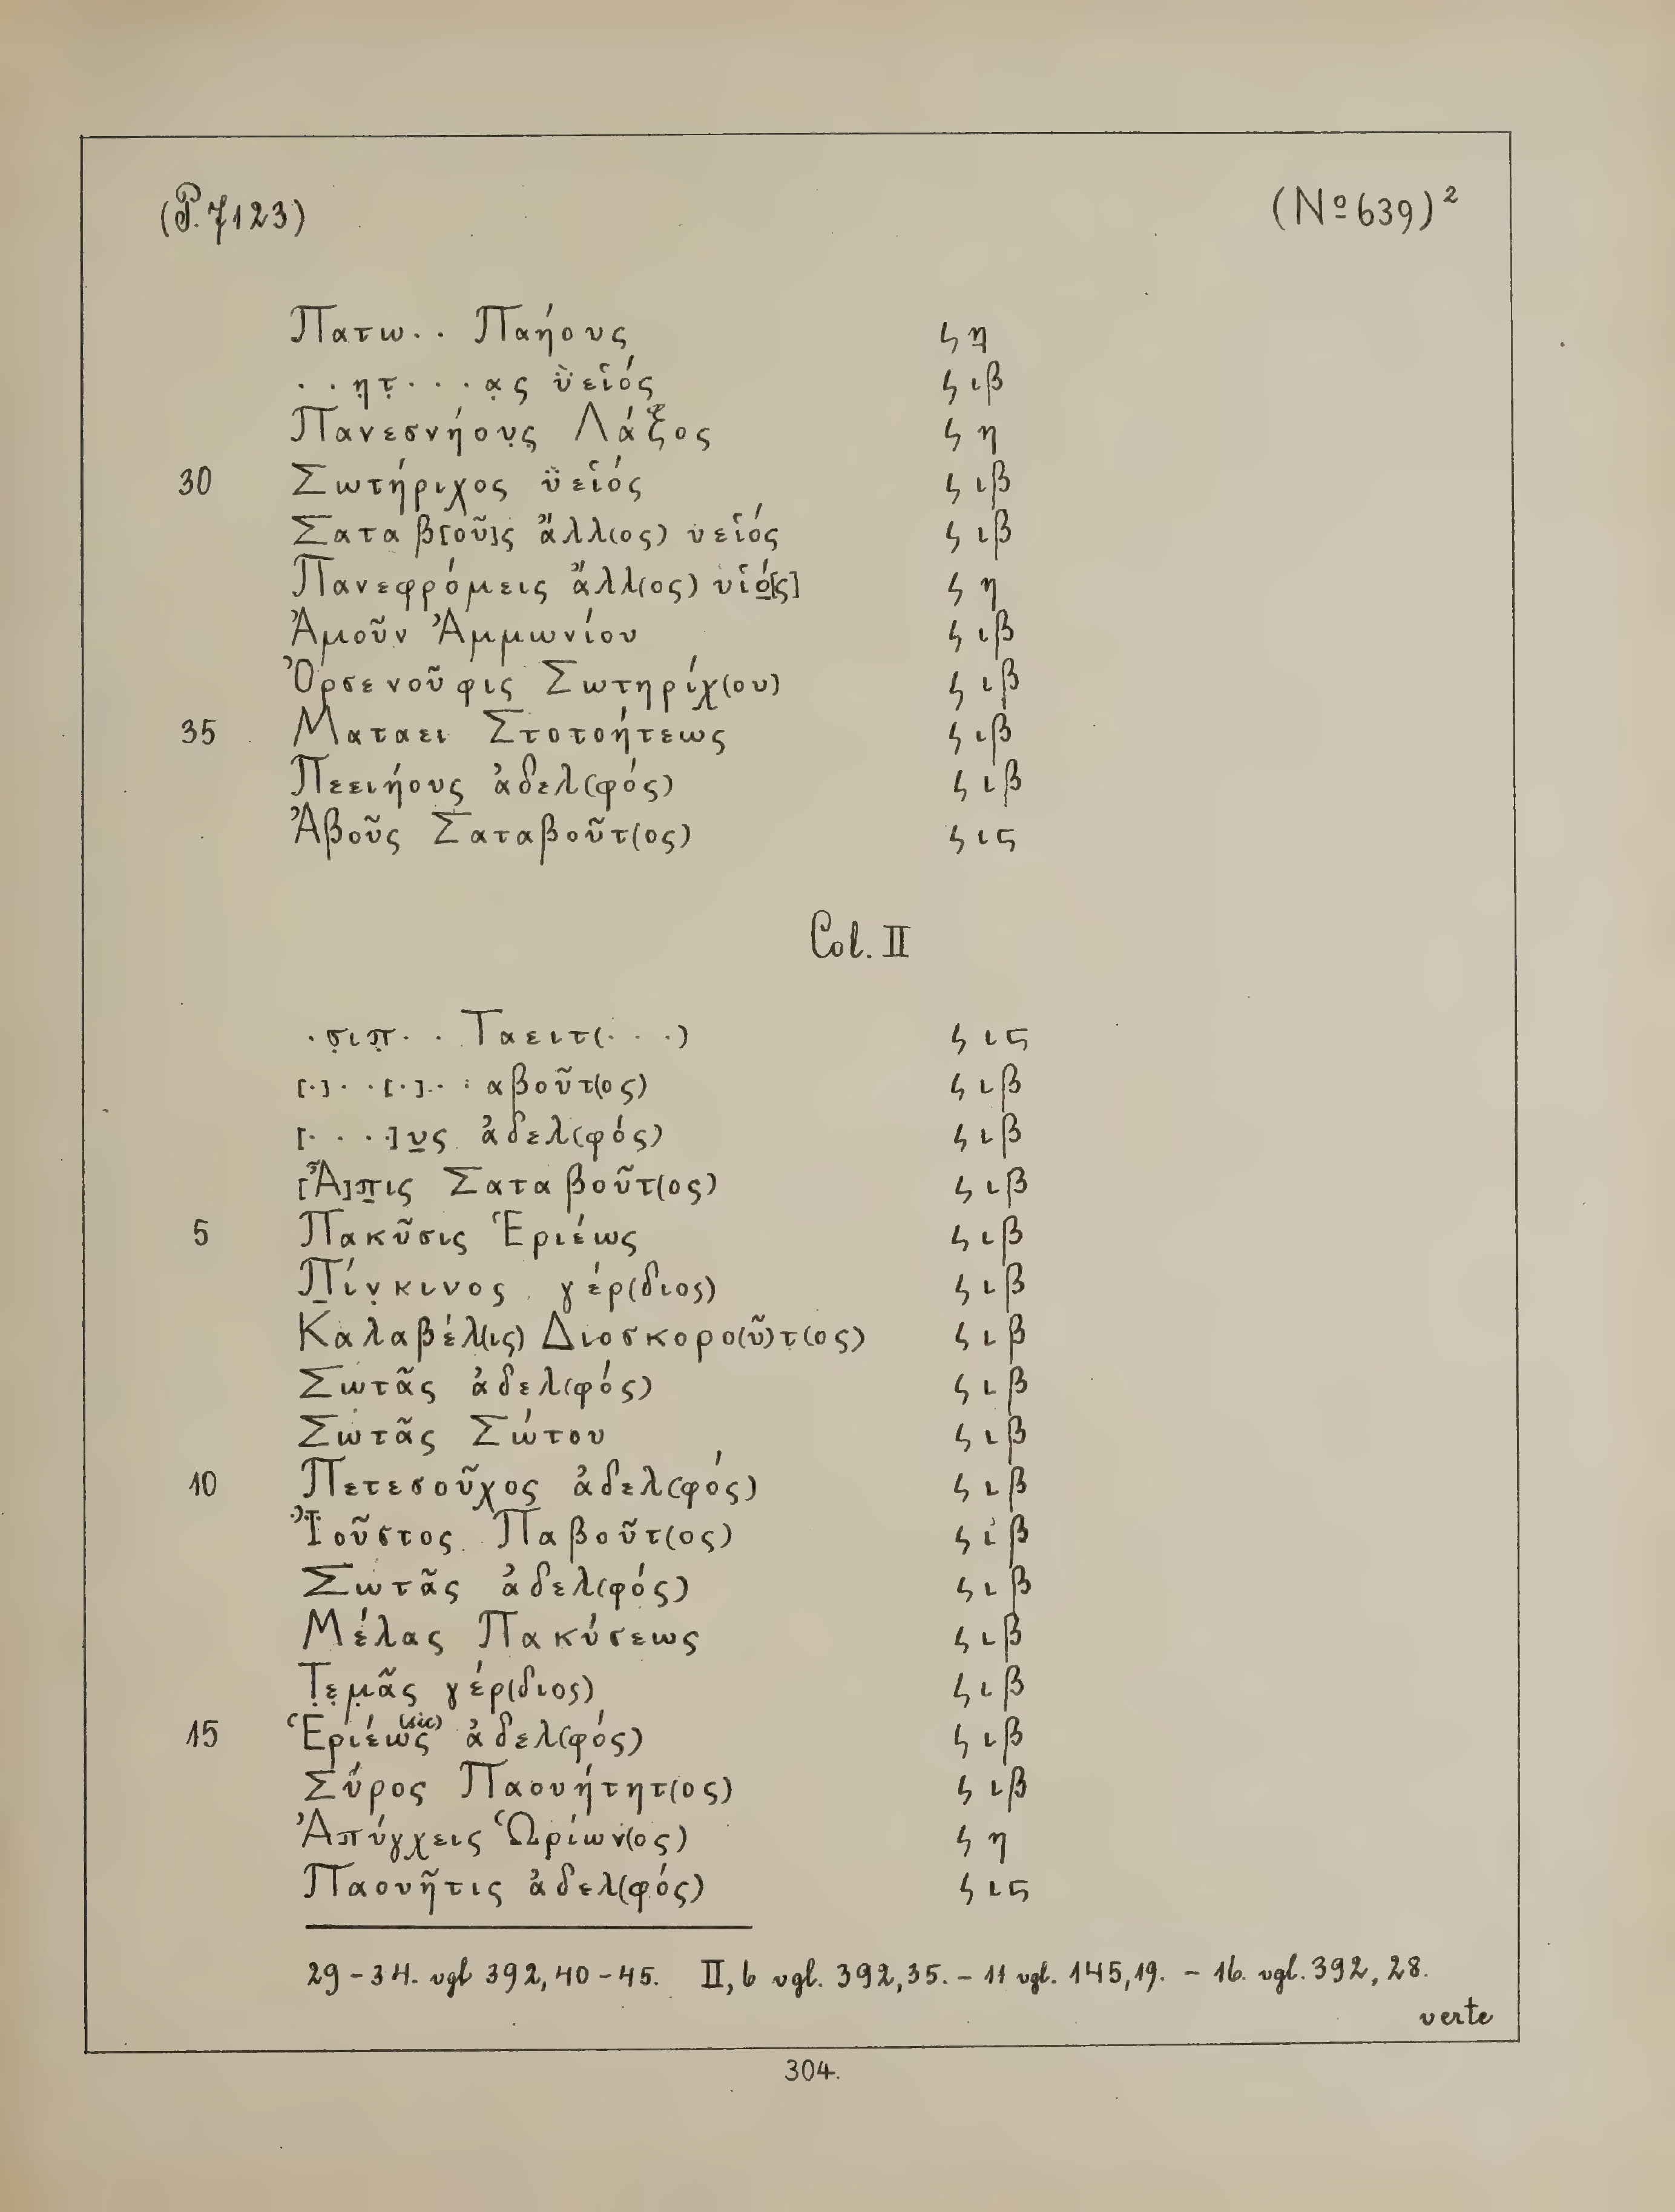 (P. 7123) (No 639)²
Πατω.. Παήους ϛ η
..ητ̣...α̣ς ϋειός ϛ ιβ
Πανεσνήου̣ς̣ Λάξος ϛ η
30 Σωτήριχος ϋειός ϛ ιβ
Σαταβ[οῦ]ς ἄλλ(ος) υειός ϛ ιβ
Πανεφρόμεις ἄλλ(ος) υἱό[ς] ϛ η
Ἀμοῦν Ἀμμωνίου ϛ ιβ
Ὀρσενοῦφις Σωτηρίχ(ου) ϛ ιβ
35 Ματαει Στοτοήτεως ϛ ιβ
Πεειήους ἀδελ(φός) ϛ ιβ
Ἀβοῦς Σαταβοῦτ(ος) ϛ ιϛ
Col. II
.σ̣ιπ̣.. Ταειτ(...) ϛ ιϛ
[.]..[.]...αβοῦτ(ος) ϛ ιβ
[....]υ̣ς ἀδελ(φός) ϛ ιβ
[Ἆ]π̣ις Σαταβοῦτ(ος) ϛ ιβ
5 Πακῦσις Ἑριέως ϛ ιβ
Π̣ίν̣κινος γέρ(διος) ϛ ιβ
Καλαβέλ(ις) Διοσκορο(ῦ)τ(ος) ϛ ιβ
Σωτᾶς ἀδελ(φός) ϛ ιβ
Σωτᾶς Σώτου ϛ ιβ
10 Πετεσοῦχος ἀδελ(φός) ϛ ιβ
Ἰ̈οῦστος Παβοῦτ(ος) ϛ ιβ
Σωτᾶς ἀδελ(φός) ϛ ιβ
Μέλας Πακύσεως ϛ ιβ
Τ̣ε̣μ̣ᾶς γέρ(διος) ϛ ιβ
15 Ἑριέως (sic) ἀδελ(φός) ϛ ιβ
Σύρος Παουήτητ(ος) ϛ ιβ
Ἀπύγχεις Ὡρίων(ος) ϛ η
Παουῆτις ἀδελ(φός) ϛ ιϛ
29-34. vgl 392,40-45. II,6 vgl. 392,35. - 11 vgl. 145,19. - 16. vgl. 392,28.
verte
304.